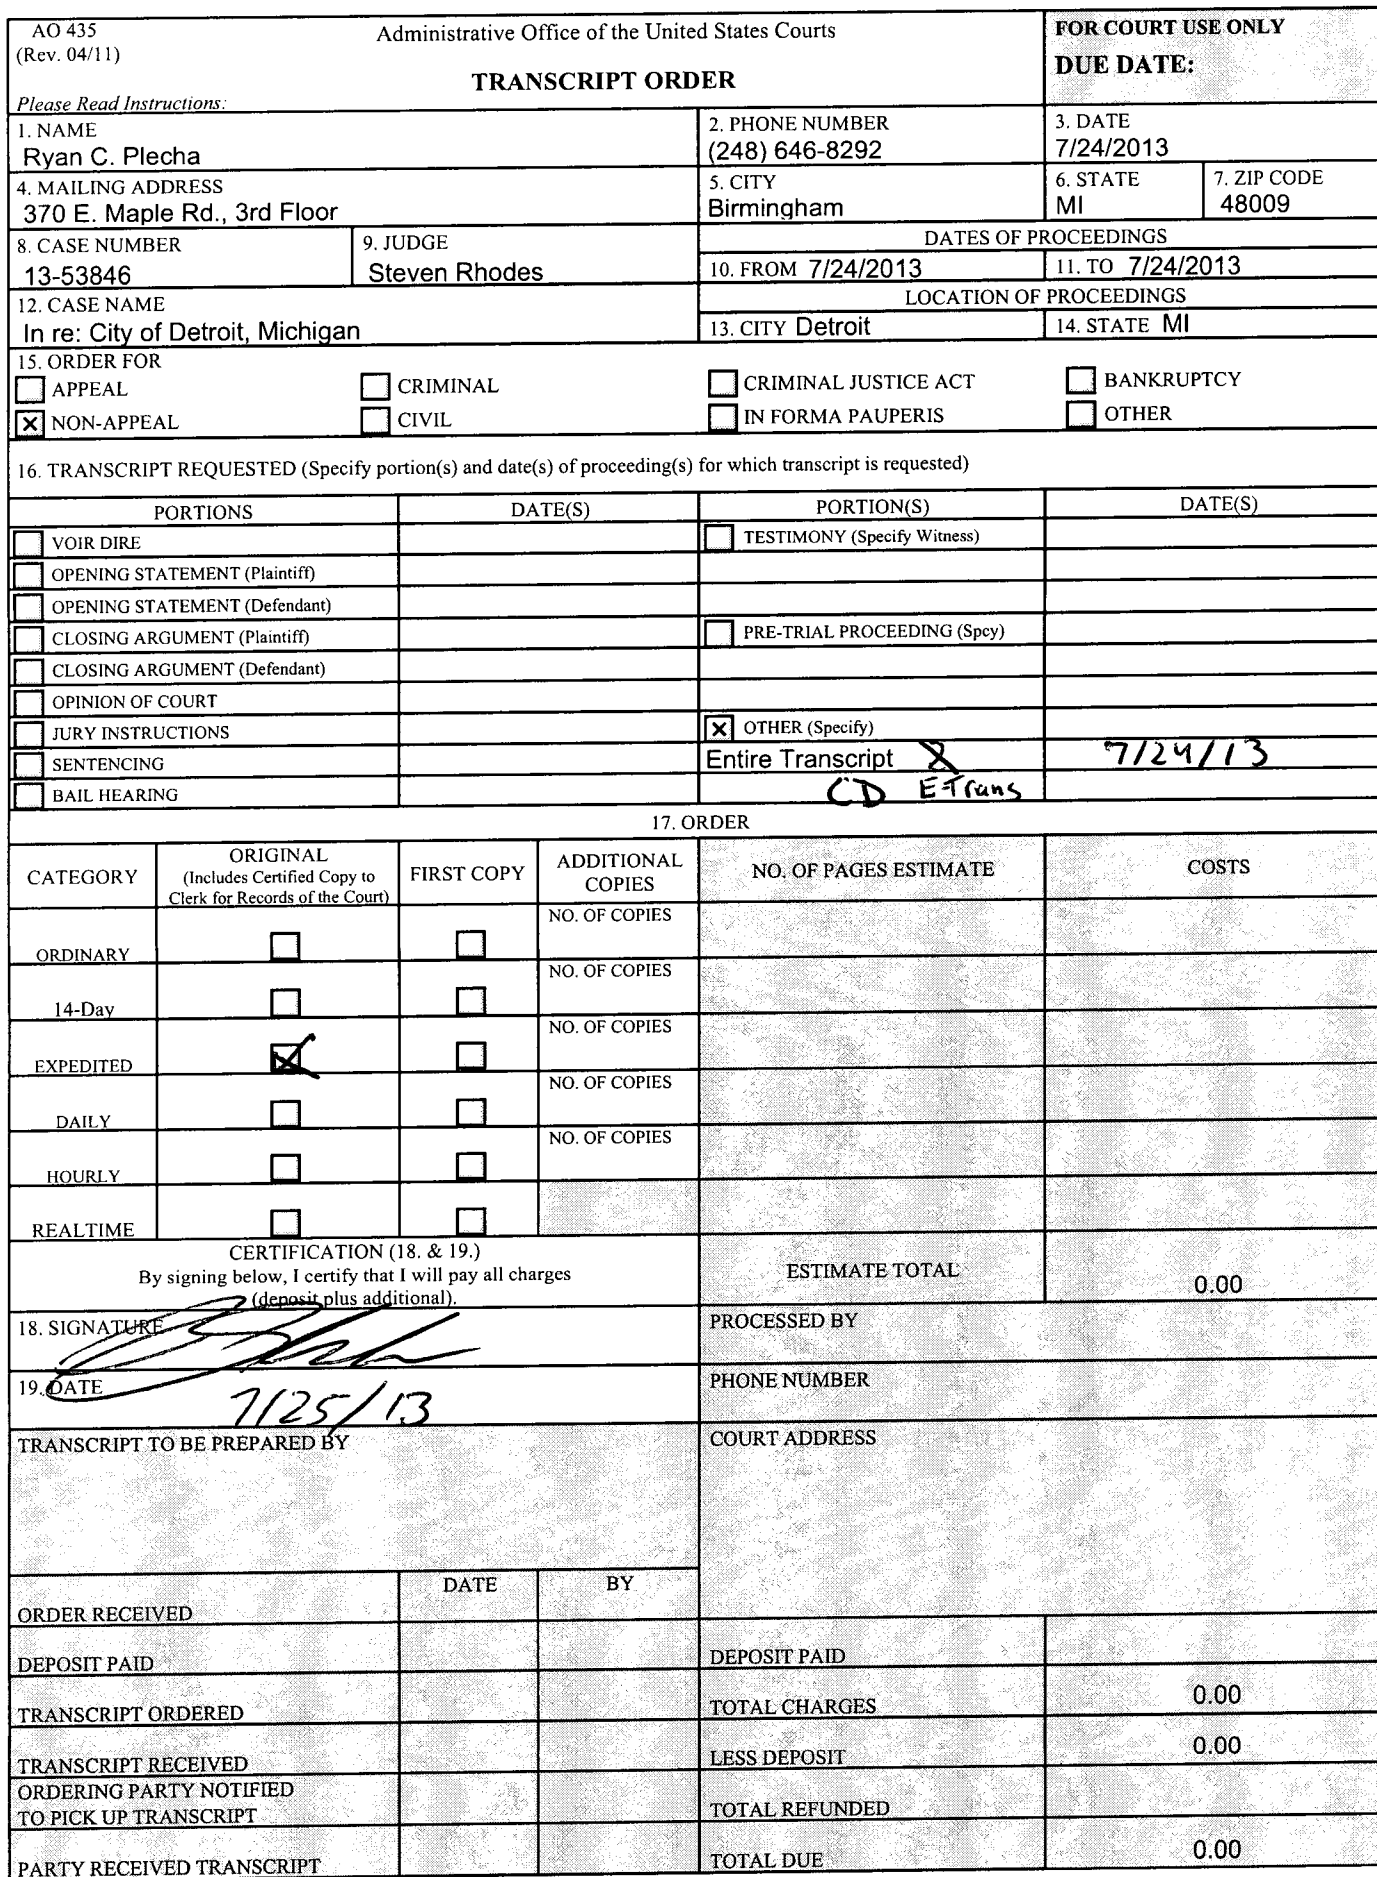 AO 435
(Rev. 04/11)
Administrative Office of the United States Courts
TRANSCRIPT ORDER
FOR COURT USE ONLY
DUE DATE:
Please Read Instructions:
1. NAME
Ryan C. Plecha
2. PHONE NUMBER
(248) 646-8292
3. DATE
7/24/2013
4. MAILING ADDRESS
370 E. Maple Rd., 3rd Floor
5. CITY
Birmingham
6. STATE
MI
7. ZIP CODE
48009
8. CASE NUMBER
13-53846
9. JUDGE
Steven Rhodes
DATES OF PROCEEDINGS
10. FROM 7/24/2013
11. TO 7/24/2013
12. CASE NAME
In re: City of Detroit, Michigan
LOCATION OF PROCEEDINGS
13. CITY Detroit
14. STATE MI
15. ORDER FOR
APPEAL
CRIMINAL
CRIMINAL JUSTICE ACT
BANKRUPTCY
X NON-APPEAL
CIVIL
IN FORMA PAUPERIS
OTHER
16. TRANSCRIPT REQUESTED (Specify portion(s) and date(s) of proceeding(s) for which transcript is requested)
PORTIONS DATE(S) PORTION(S) DATE(S)
VOIR DIRE
TESTIMONY (Specify Witness)
OPENING STATEMENT (Plaintiff)
OPENING STATEMENT (Defendant)
CLOSING ARGUMENT (Plaintiff)
PRE-TRIAL PROCEEDING (Spcy)
CLOSING ARGUMENT (Defendant)
OPINION OF COURT
JURY INSTRUCTIONS
X OTHER (Specify)
SENTENCING
Entire Transcript
7/24/13
BAIL HEARING
CD E-Trans
17. ORDER
CATEGORY
ORIGINAL
(Includes Certified Copy to
Clerk for Records of the Court)
FIRST COPY
ADDITIONAL
COPIES
NO. OF PAGES ESTIMATE
COSTS
NO. OF COPIES
ORDINARY
NO. OF COPIES
14-Day
NO. OF COPIES
EXPEDITED X
NO. OF COPIES
DAILY
NO. OF COPIES
HOURLY
REALTIME
CERTIFICATION (18. & 19.)
By signing below, I certify that I will pay all charges
(deposit plus additional).
ESTIMATE TOTAL
0.00
18. SIGNATURE
PROCESSED BY
19. DATE
7/25/13
PHONE NUMBER
TRANSCRIPT TO BE PREPARED BY
COURT ADDRESS
DATE BY
ORDER RECEIVED
DEPOSIT PAID
DEPOSIT PAID
TRANSCRIPT ORDERED
TOTAL CHARGES
0.00
TRANSCRIPT RECEIVED
LESS DEPOSIT
0.00
ORDERING PARTY NOTIFIED
TO PICK UP TRANSCRIPT
TOTAL REFUNDED
PARTY RECEIVED TRANSCRIPT
TOTAL DUE
0.00